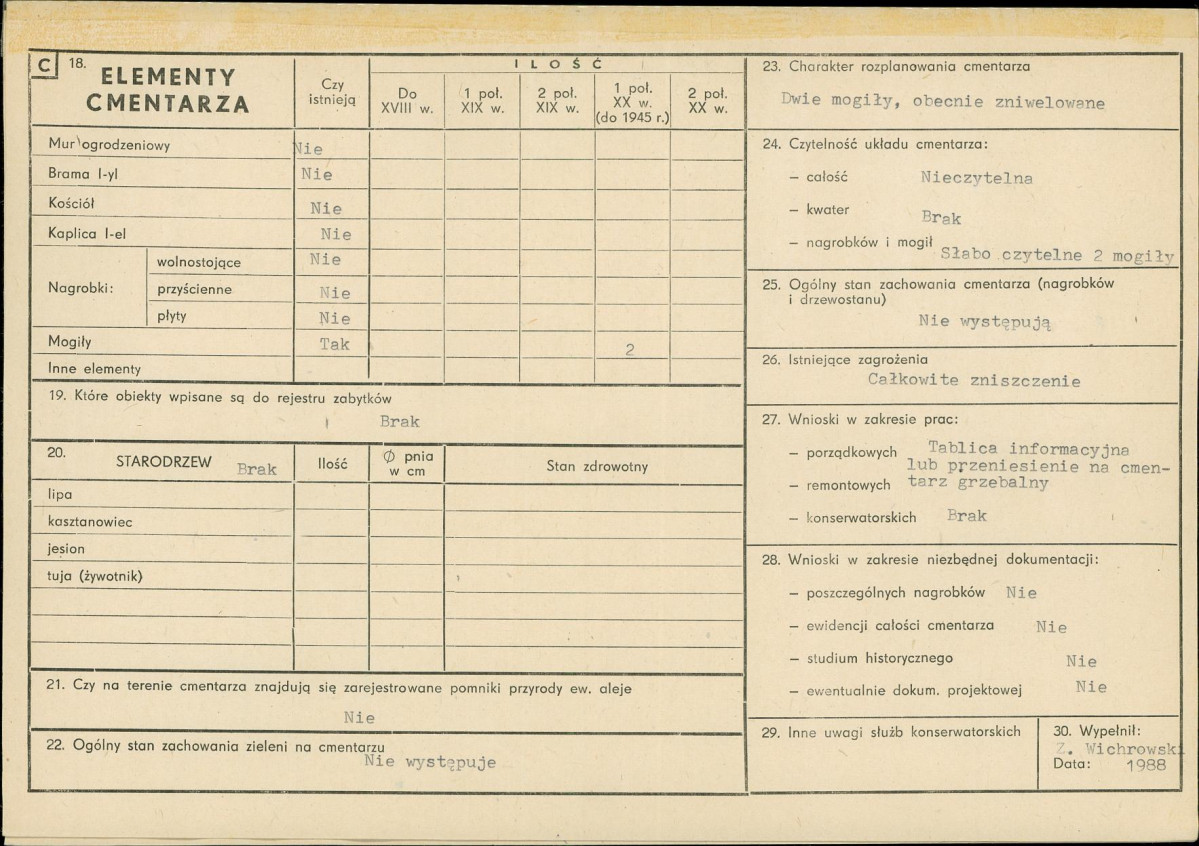 C 18. ELEMENTY
CMENTARZA
Czy
istnieją
ILOŚĆ
Do
XVIII w.
1 poł.
XIX w.
2 poł.
XIX w.
1 poł.
XX w.
(do 1945 r.)
2 poł.
XX w.
Mur ogrodzeniowy Nie
Brama I-yl Nie
Kościół Nie
Kaplica I-el Nie
Nagrobki:
wolnostojące Nie
przyścienne Nie
płyty Nie
Mogiły Tak 2
Inne elementy
19. Które obiekty wpisane są do rejestru zabytków
Brak
20. STARODRZEW Brak
Ilość
Ø pnia
w cm
Stan zdrowotny
lipa
kasztanowiec
jesion
tuja (żywotnik)
21. Czy na terenie cmentarza znajdują się zarejestrowane pomniki przyrody ew. aleje
Nie
22. Ogólny stan zachowania zieleni na cmentarzu
Nie występuje
23. Charakter rozplanowania cmentarza
Dwie mogiły, obecnie zniwelowane
24. Czytelność układu cmentarza:
– całość Nieczytelna
– kwater Brak
– nagrobków i mogił Słabo czytelne 2 mogiły
25. Ogólny stan zachowania cmentarza (nagrobków
i drzewostanu)
Nie występują
26. Istniejące zagrożenia
Całkowite zniszczenie
27. Wnioski w zakresie prac:
– porządkowych Tablica informacyjna
lub przeniesienie na cmen-
– remontowych tarz grzebalny
– konserwatorskich Brak
28. Wnioski w zakresie niezbędnej dokumentacji:
– poszczególnych nagrobków Nie
– ewidencji całości cmentarza Nie
– studium historycznego Nie
– ewentualnie dokum. projektowej Nie
29. Inne uwagi służb konserwatorskich
30. Wypełnił:
Z. Wichrowski
Data: 1988